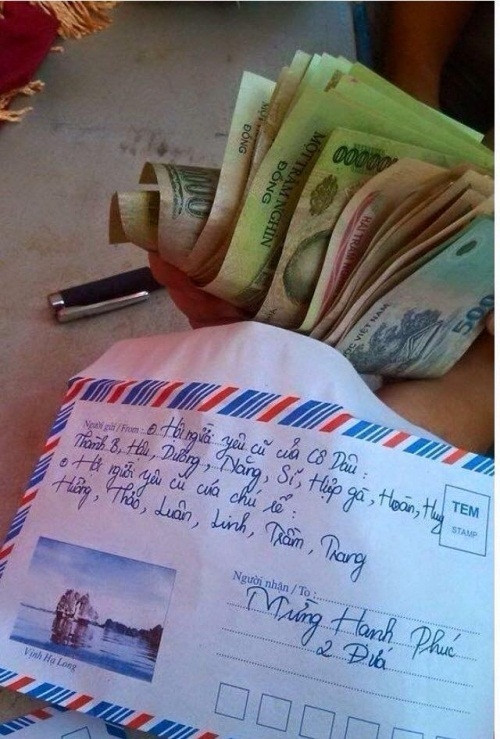 MỘT
ĐỒNG
MỘT TRĂM NGHÌN
ĐỒNG
VIỆT NAM
500
Người gửi / From : Hội người yêu cũ của Cô Dâu :
Thành B, Hải, Dưỡng, Năng, Sĩ, Hiệp gà, Hoàn, Huy
Hội người yêu cũ của chú rể :
Hường, Thảo, Luân, Linh, Trầm, Trang
TEM
STAMP
Người nhận / To :
Mừng Hạnh Phúc
2 Đứa
Vịnh Hạ Long